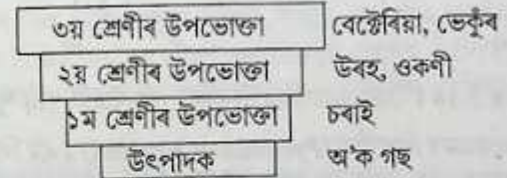 ৩য় শ্ৰেণীৰ উপভোক্তা বেক্টেৰিয়া, ভেকুঁৰ
২য় শ্ৰেণীৰ উপভোক্তা উৰহ, ওকণী
১ম শ্ৰেণীৰ উপভোক্তা চৰাই
উৎপাদক অ'ক গছ